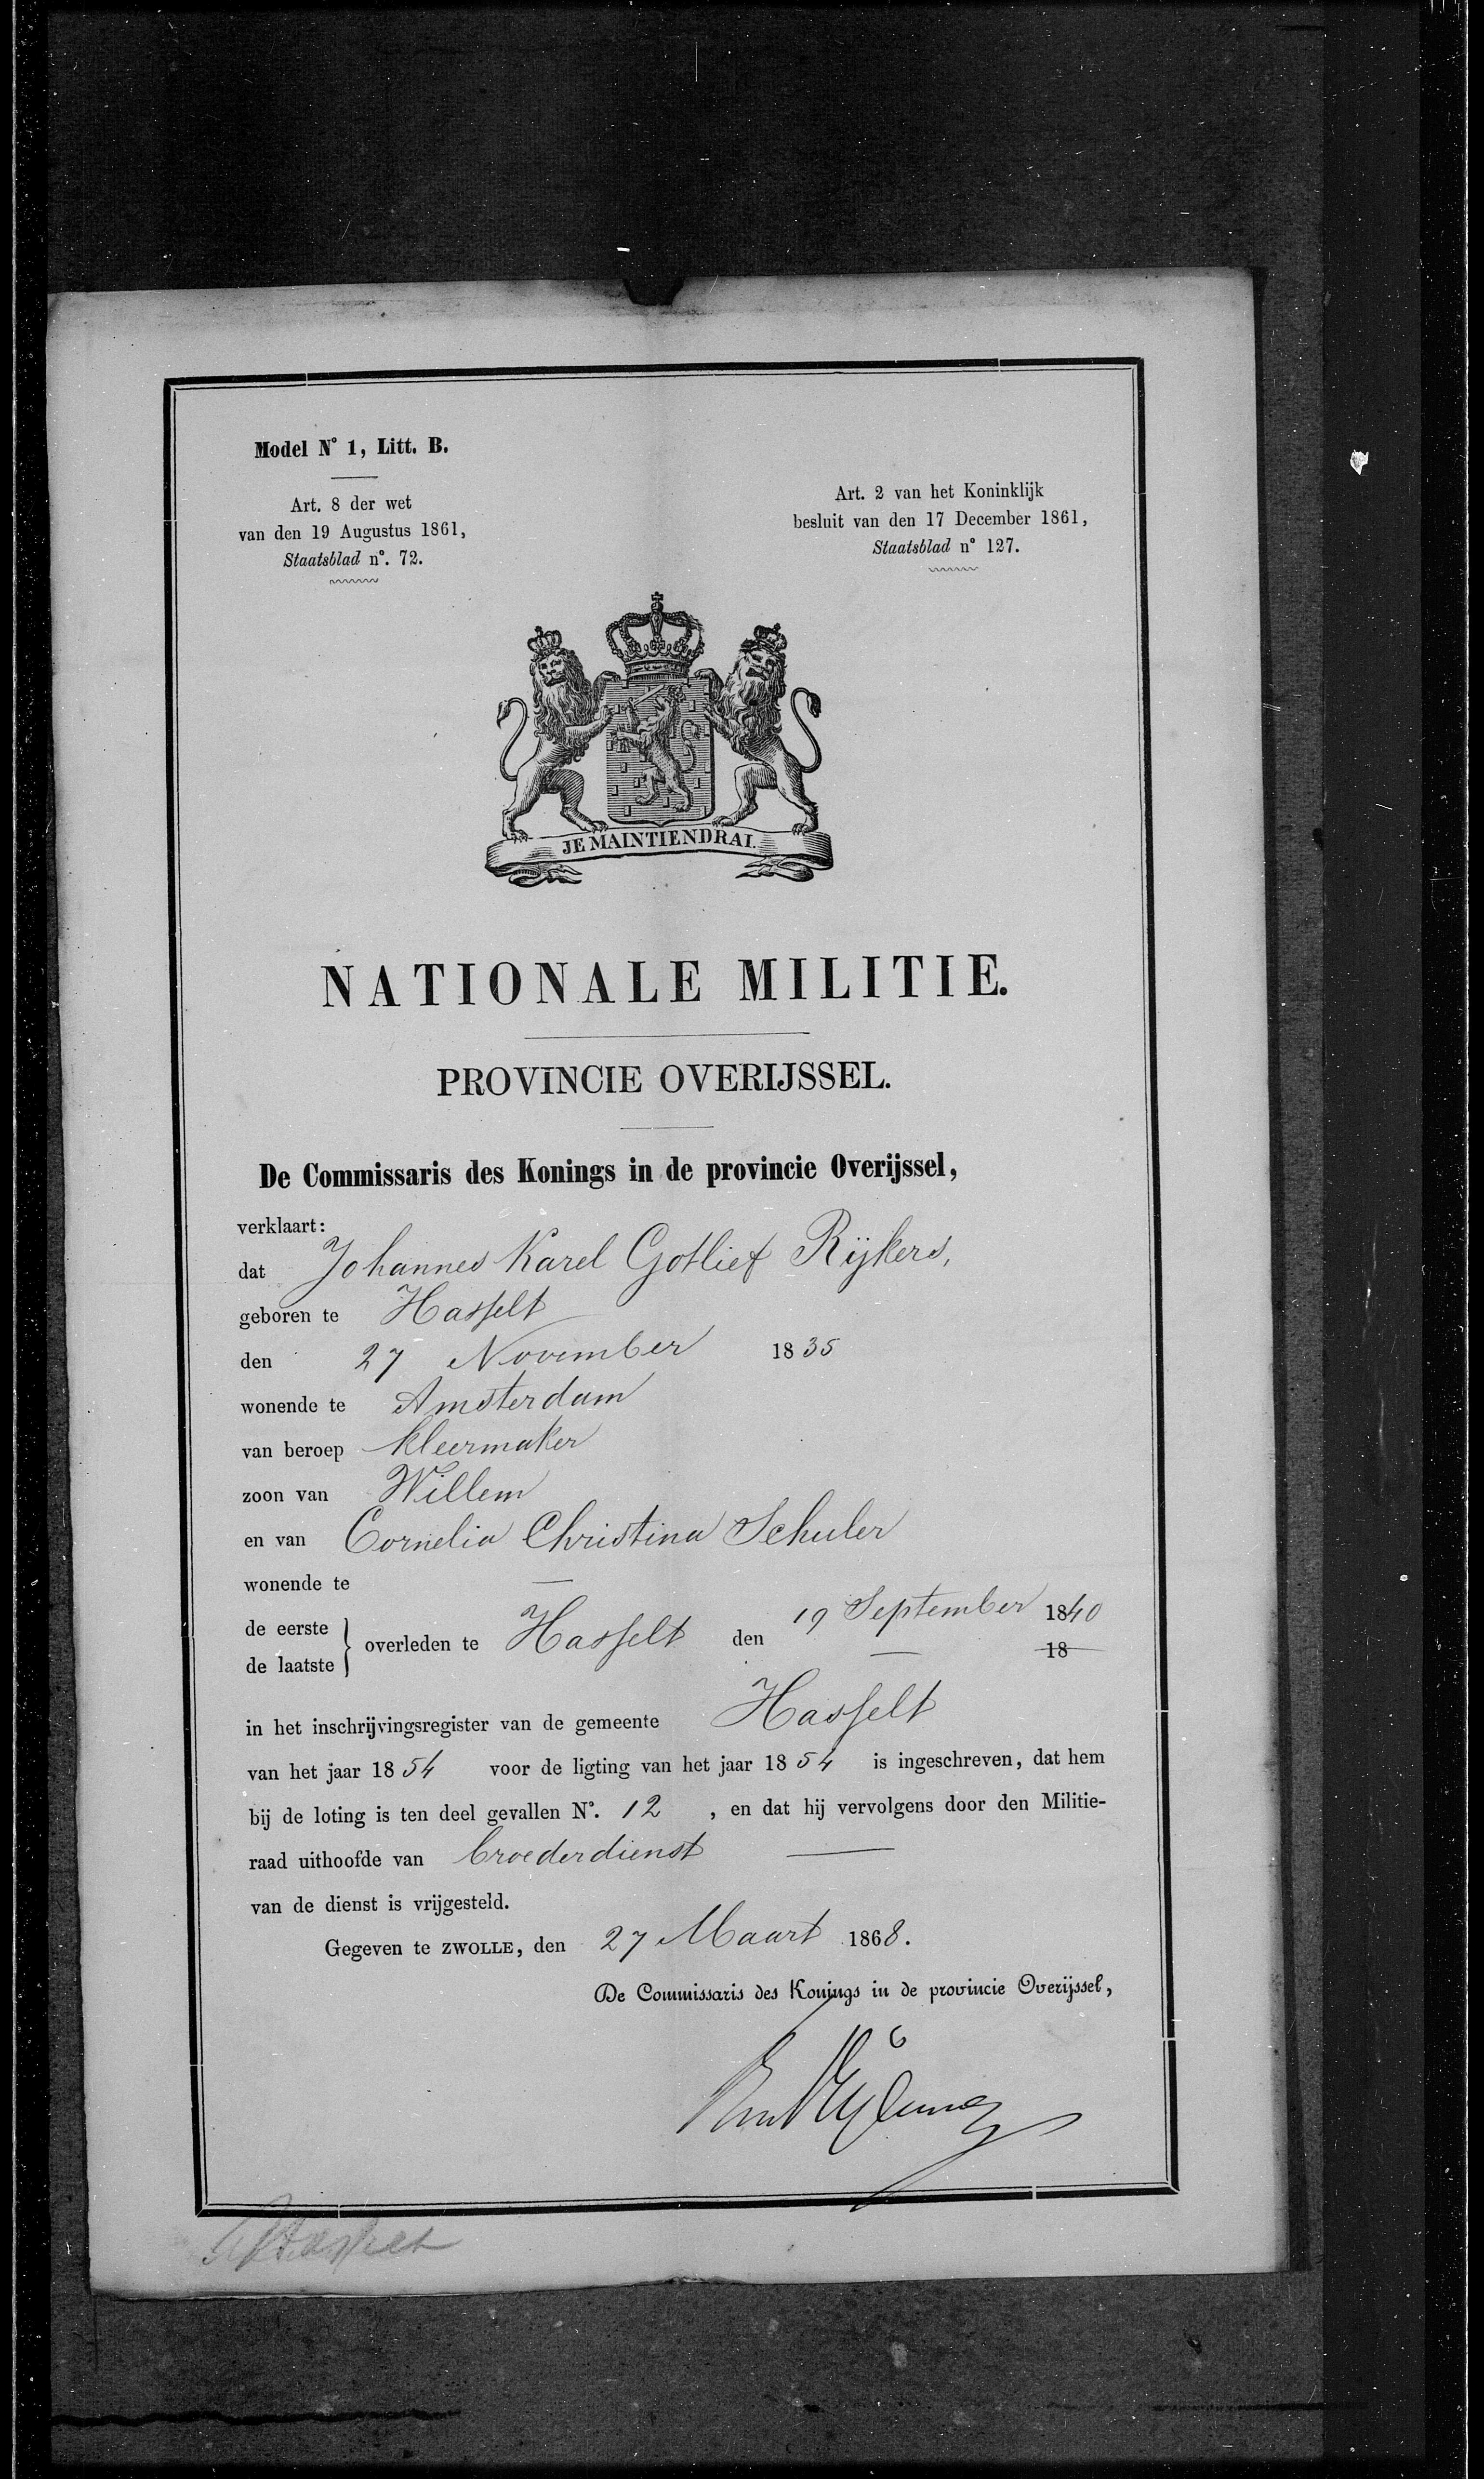 Model N° 1, Litt. B.
Art. 8 der wet
van den 19 Augustus 1861,
Staatsblad n°. 72.
Art. 2 van het Koninklijk
besluit van den 17 December 1861,
Staatsblad n° 127.
JE MAINTIENDRAI.
NATIONALE MILITIE.
PROVINCIE OVERIJSSEL.
De Commissaris des Konings in de provincie Overijssel,
verklaart:
dat Johannes Karel Gotlief Rijkers,
geboren te Hasselt
den 27 November 1835
wonende te Amsterdam
van beroep kleermaker
zoon van Willem
en van Cornelia Christina Schuler
wonende te —
de eerste } overleden te Hasselt den 19 September 1840
de laatste — 18
in het inschrijvingsregister van de gemeente Hasselt
van het jaar 1854 voor de ligting van het jaar 1854 is ingeschreven, dat hem
bij de loting is ten deel gevallen N°. 12 , en dat hij vervolgens door den Militie-
raad uithoofde van broederdienst —
van de dienst is vrijgesteld.
Gegeven te ZWOLLE, den 27 Maart 1868.
De Commissaris des Konings in de provincie Overijssel,
Hasselt